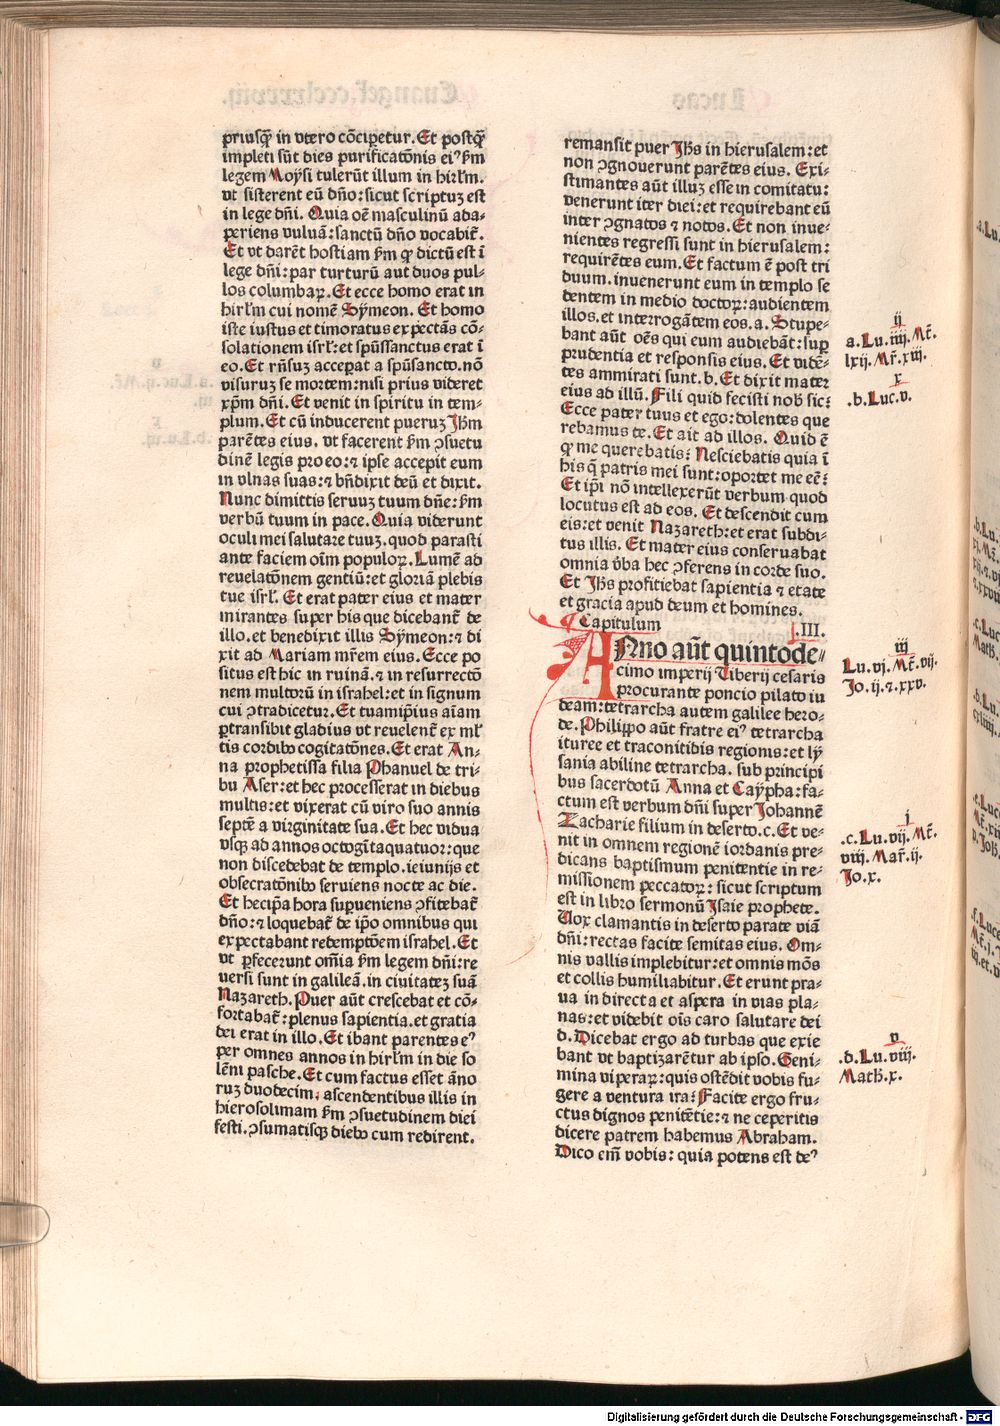 priusq̄ in vtero cōcip̄etur. Et postq̄
impleti sūt dies purificatōnis ei⁹ ẜm
legem Moysi tulerūt illum in hirl̄m.
vt sisterent eū dn̄o: sicut scriptuz est
in lege dn̄i. Quia oē masculinū ada⸗
periens vuluā: sanctū dn̄o vocabit̄.
Et vt darēt hostiam ẜm qᷤ dictū est ī
lege dn̄i: par turturū aut duos pul⸗
los columbaꝝ. Et ecce homo erat in
hirl̄m cui nomē Symeon. Et homo
iste iustus et timoratus expectās cō⸗
solationem isrl̄: et spūssanctus erat ī
eo. Et rn̄suz accepat a spūsancto. nō
visuruz se mortem: nisi prius videret
xp̄m dn̄i. Et venit in spiritu in tem⸗
plum. Et cū inducerent pueruz Jhm̄
parētes eius. vt facerent ẜm ꝯsuetu
dinē legis pro eo: ⁊ ipse accepit eum
in vlnas suas: ⁊ bn̄dixit deū et dixit.
Nunc dimittis seruuz tuum dn̄e: ẜm
verbū tuum in pace. Quia viderunt
oculi mei salutare tuuz. quod parasti
ante faciem oīm populoꝝ. Lumē ad
reuelatōnem gentiū: et gloriā plebis
tue isrl̄. Et erat pater eius et mater
mirantes super his que dicebant̄ de
illo. et benedixit illis Symeon: ⁊ di
xit ad Mariam mr̄em eius. Ecce po
situs est hic in ruinā. ⁊ in resurrectō
nem multorū in israhel: et in signum
cui ꝯtradicetur. Et tuamip̄ius aīam
ꝑtransibit gladius vt reuelent̄ ex ml̄
tis cordibꝰ cogitatōnes. Et erat An⸗
na prophetissa filia Phanuel de tri⸗
bu Aser: et hec processerat in diebus
multis: et vixerat cū viro suo annis
septē a virginitate sua. Et hec vidua
vsqꝫ ad annos octogītaquatuor: que
non discedebat de templo. ieiunijs et
obsecratōnibꝰ seruiens nocte ac die.
Et hecip̄a hora supueniens ꝯfitebat̄
dn̄o: ⁊ loquebat̄ de ip̄o omnibus qui
expectabant redemptōem israhel. Et
vt ꝑfecerunt om̄ia ẜm legem dn̄i: re
uersi sunt in galileā. in ciuitatez suā
Nazareth. Puer aūt crescebat et cō⸗
fortabat̄: plenus sapientia. et gratia
dei erat in illo. Et ibant parentes e⁹
per omnes annos in hirl̄m in die so
lēni pasche. Et cum factus esset āno
ruz duodecim. ascendentibus illis in
hierosolimam ẜm ꝯsuetudinem diei
festi. ꝯsumatisqꝫ diebꝰ cum redirent.
remansit puer Jhs̄ in hierusalem: et
non ꝯgnouerunt parētes eius. Exi⸗
stimantes aūt illuz esse in comitatu:
venerunt iter diei: et requirebant eū
inter ꝯgnatos ⁊ notos. Et non inue⸗
nientes regressi sunt in hierusalem:
requirētes eum. Et factum ē post tri
duum. inuenerunt eum in templo se
dentem in medio doctoꝝ: audientem
illos. et interrogātem eos. a. Stupe⸗
bant aūt oēs qui eum audiebāt: suꝑ
prudentia et responsis eius. Et vidē⸗
tes ammirati sunt. b. Et dixit mater
eius ad illū. Fili quid fecisti nob̄ sic:
Ecce pater tuus et ego: dolentes que
rebamus te. Et ait ad illos. Quid ē
qᷤ me querebatis: Nesciebatis quia ī
his q̄ patris mei sunt: oportet me eē:
Et ip̄i nō intellexerūt verbum quod
locutus est ad eos. Et descendit cum
eis: et venit Nazareth: et erat subdi⸗
tus illis. Et mater eius conseruabat
omnia v̄ba hec ꝯferens in corde suo.
Et Jhs̄ profitiebat sapientia ⁊ etate
et gracia apud deum et homines.
Capitulum .III.
ANno aūt quintode⸗
cimo imperij Tiberij cesaris
procurante poncio pilato iu
deam: tetrarcha autem galilee hero⸗
de. Philippo aūt fratre ei⁹ tetrarcha
ituree et traconitidis regionis: et ly
sania abiline tetrarcha. sub principi
bus sacerdotū Anna et Caypha: fa⸗
ctum est verbum dn̄i super Johannē
Zacharie filium in deserto. c. Et ve⸗
nit in omnem regionē iordanis pre⸗
dicans baptismum penitentie in re⸗
missionem peccatoꝝ: sicut scriptum
est in libro sermonū Isaie prophete.
Vox clamantis in deserto parate viā
dn̄i: rectas facite semitas eius. Om⸗
nis vallis implebitur: et omnis mōs
et collis humiliabitur. Et erunt pra⸗
ua in directa et aspera in vias pla⸗
nas: et videbit oīs caro salutare dei
d. Dicebat ergo ad turbas que exie
bant vt baptizarētur ab ipso. Geni⸗
mina viperaꝝ: quis ostēdit vobis fu⸗
gere a ventura ira: Facite ergo fru⸗
ctus dignos penitētie: ⁊ ne ceperitis
dicere patrem habemus Abraham.
Dico em̄ vobis: quia potens est de⁹
ij
a. Lu. iiij. Mt̄.
lxij. Mr̄. xiij.
x
.b. Luc. v.
iij
Lu. vj. Mt̄. vij.
Jo. ij. ⁊. xxv.
j
.c. Lu. vij. Mt̄.
viij. Mar̄. ij.
Jo. x.
v
.d. Lu. viij.
Math. x.
Digitalisierung gefördert durch die Deutsche Forschungsgemeinschaft - DFG